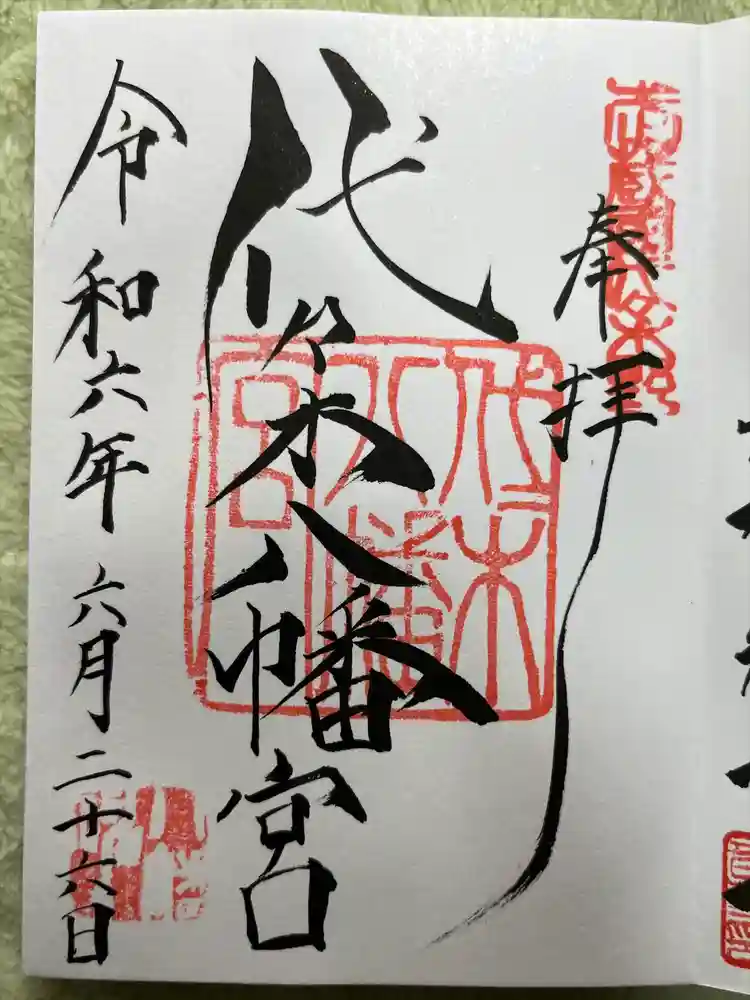 奉拝
代々木八幡宮
令和六年六月二十六日
代々木
八幡
宮